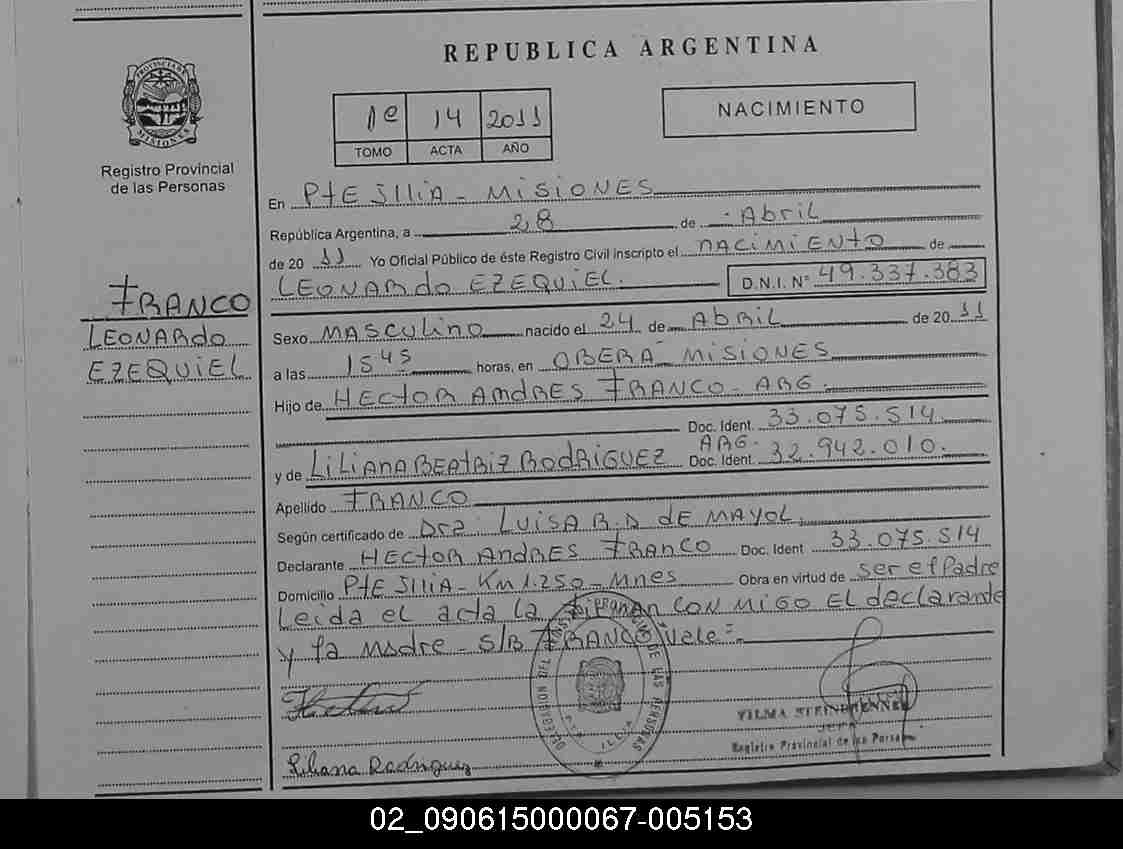 REPUBLICA ARGENTINA
PROVINCIA DE
MISIONES
Registro Provincial
de las Personas
1º 14 2011
TOMO ACTA AÑO
NACIMIENTO
En PtE ILLIA - MISIONES
República Argentina, a 28 de Abril
de 20 11 Yo Oficial Público de éste Registro Civil inscripto el NACIMIENTO de
LEONARdo EZEQUiEL. D.N.I. Nº 49.337.383
FRANCO
LEONARdo
EZEQUiEL
Sexo MASCULino nacido el 24 de AbRiL de 20 11
a las 15 45 horas, en OBERA - MISIONES
Hijo de HECtOR AndRES FRANCO - ARG.
Doc. Ident. 33.075.514
y de LiLiANA BEAtRiZ RodRiGUEZ ARG. Doc. Ident. 32.942.010.
Apellido FRANCO
Según certificado de Dra. LUISA B.D dE MAYOL.
Declarante HECTOR ANdRES FRANCO Doc. Ident 33.075.514
Domicilio PtE ILLIA - Km 1.250 - Mnes Obra en virtud de ser el Padre
Leida el acta La firman CON MIGO EL declarante
y la Madre - S/B FRANCO Vele =
Liliana Rodriguez
Registro Provincial de las Personas
02_090615000067-005153